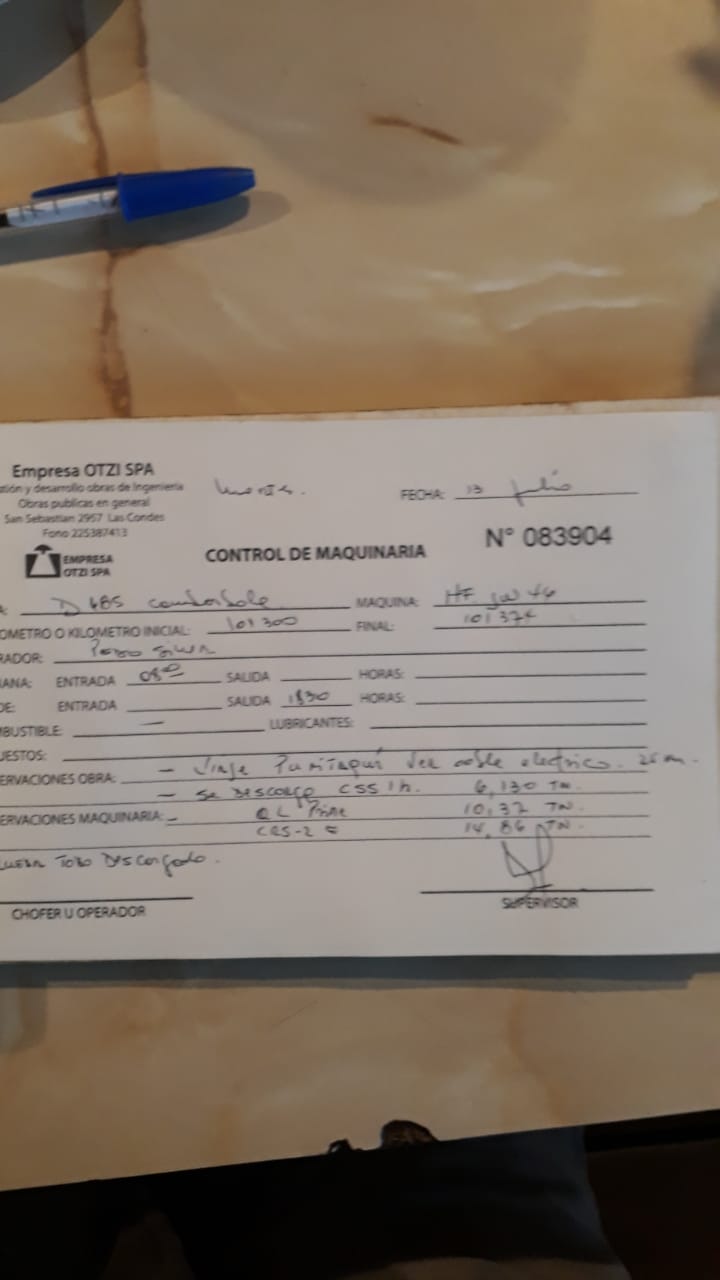 Empresa OTZI SPA
tión y desarrollo obras de Ingeniería
Obras publicas en general
San Sebastian 2957 Las Condes
Fono 225387413
EMPRESA
OTZI SPA
FECHA: 13 Julio
Nº 083904
CONTROL DE MAQUINARIA
A: D 485
MAQUINA: HF
OMETRO O KILOMETRO INICIAL: 101300 FINAL: 101374
RADOR: Pedro Silva
ANA: ENTRADA 08⁰⁰ SALIDA HORAS:
DE: ENTRADA SALIDA 1830 HORAS:
MBUSTIBLE: — LUBRICANTES:
UESTOS:
ERVACIONES OBRA: - Viaje Punitaqui Ver cable electrico.
- Se Descargo CSS 1h. 6,130 TN.
ERVACIONES MAQUINARIA: - QL Prime 10,37 TN.
CRS-2 = 14,86 TN.
Todo Descargado.
CHOFER U OPERADOR
SUPERVISOR